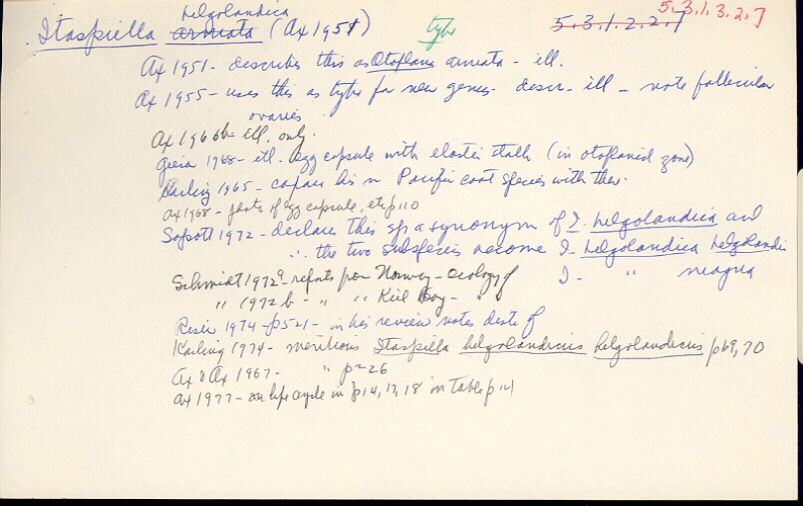 helgolandica 5.3.1.3.2.7
Itaspiella armata (Ax 1951) type 5.3.1.2.2.7
Ax 1951 - describes this as Otoplana armata - ill.
Ax 1955 - uses this as type for new genus - descr - ill - note follicular
ovaries
Ax 1966b ill. only.
Giesa 1968 - ill - egg capsule with elastic stalk (in otoplanid zone)
Karling 1965 - compares his n Pacific coast species with this.
Ax 1968 - photo of egg capsule, etc p 110
Sopott 1972 - declares this sp a synonym of I. helgolandica and
∴ the two subspecies become I. helgolandica helgolandi
Schmidt 1972a - reports from Norway - ecology of I - " meagna
" 1972 b - " " Kiel Bay - "
Reise 1974 - p521 - in his review notes dist of
Karling 1974 - mentions Itaspella helgolandicus helgolandicus p 69, 70
Ax & Ax 1967 - " p = 26
Ax 1977 - on life cycle in p 14, 17, 18 in Table p 121